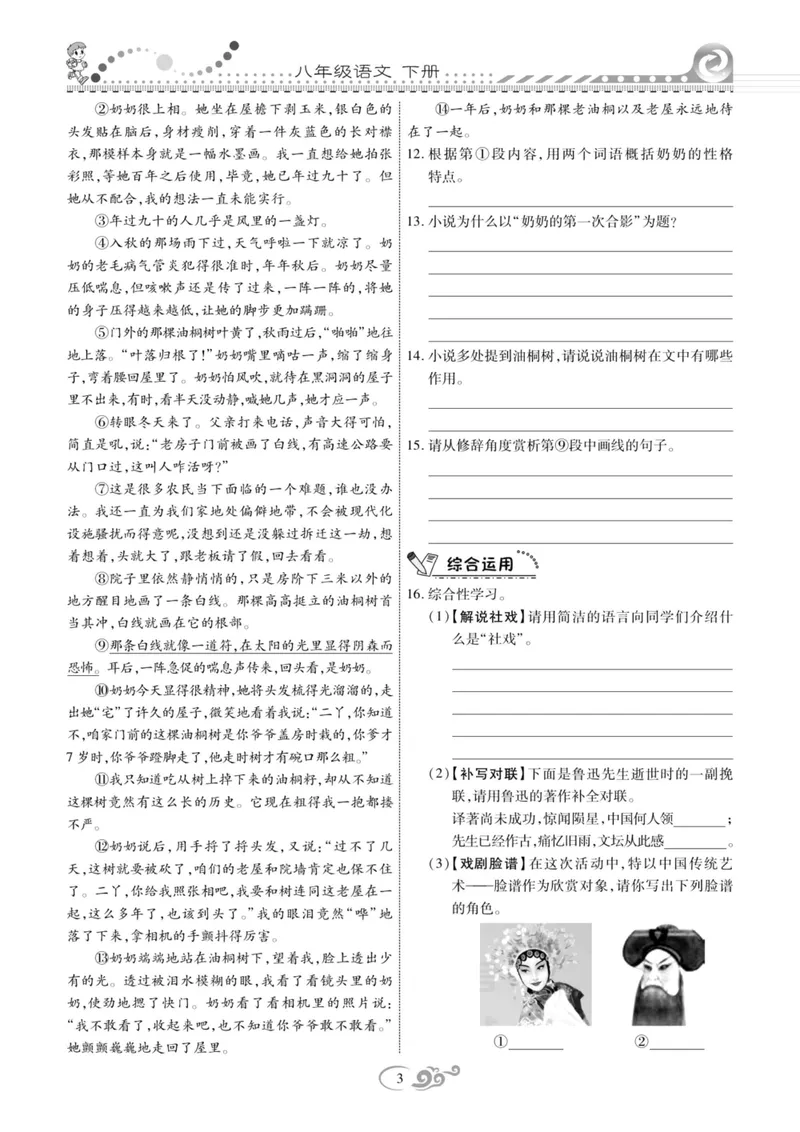 八年级语文 下册
②奶奶很上相。她坐在屋檐下剥玉米,银白色的
头发贴在脑后,身材瘦削,穿着一件灰蓝色的长对襟
衣,那模样本身就是一幅水墨画。我一直想给她拍张
彩照,等她百年之后使用,毕竟,她已年过九十了。但
她从不配合,我的想法一直未能实行。
③年过九十的人几乎是风里的一盏灯。
④入秋的那场雨下过,天气呼啦一下就凉了。奶
奶的老毛病气管炎犯得很准时,年年秋后。奶奶尽量
压低喘息,但咳嗽声还是传了过来,一阵一阵的,将她
的身子压得越来越低,让她的脚步更加蹒跚。
⑤门外的那棵油桐树叶黄了,秋雨过后,“啪啪”地往
地上落。“叶落归根了!”奶奶嘴里嘀咕一声,缩了缩身
子,弯着腰回屋里了。奶奶怕风吹,就待在黑洞洞的屋子
里不出来,有时,看半天没动静,喊她几声,她才应一声。
⑥转眼冬天来了。父亲打来电话,声音大得可怕,
简直是吼,说:“老房子门前被画了白线,有高速公路要
从门口过,这叫人咋活呀?”
⑦这是很多农民当下面临的一个难题,谁也没办
法。我还一直为我们家地处偏僻地带,不会被现代化
设施骚扰而得意呢,没想到还是没躲过拆迁这一劫,想
着想着,头就大了,跟老板请了假,回去看看。
⑧院子里依然静悄悄的,只是房阶下三米以外的
地方醒目地画了一条白线。那棵高高挺立的油桐树首
当其冲,白线就画在它的根部。
⑨那条白线就像一道符,在太阳的光里显得阴森而
恐怖。耳后,一阵急促的喘息声传来,回头看,是奶奶。
⑩奶奶今天显得很精神,她将头发梳得光溜溜的,走
出她“宅”了许久的屋子,微笑地看着我说:“二丫,你知道
不,咱家门前的这棵油桐树是你爷爷盖房时栽的,你爹才
7岁时,你爷爷蹬脚走了,他走时树才有碗口那么粗。”
⑪我只知道吃从树上掉下来的油桐籽,却从不知道
这棵树竟然有这么长的历史。它现在粗得我一抱都搂
不严。
⑫奶奶说后,用手捋了捋头发,又说:“过不了几
天,这树就要被砍了,咱们的老屋和院墙肯定也保不住
了。二丫,你给我照张相吧,我要和树连同这老屋在一
起,这么多年了,也该到头了。”我的眼泪竟然“哗”地
落了下来,拿相机的手颤抖得厉害。
⑬奶奶端端地站在油桐树下,望着我,脸上透出少
有的光。透过被泪水模糊的眼,我看了看镜头里的奶
奶,使劲地摁了快门。奶奶看了看相机里的照片说:
“我不敢看了,收起来吧,也不知道你爷爷敢不敢看。”
她颤颤巍巍地走回了屋里。
⑭一年后,奶奶和那棵老油桐以及老屋永远地待
在了一起。
12. 根据第①段内容,用两个词语概括奶奶的性格
特点。
13. 小说为什么以“奶奶的第一次合影”为题?
14. 小说多处提到油桐树,请说说油桐树在文中有哪些
作用。
15. 请从修辞角度赏析第⑨段中画线的句子。
综合运用
16. 综合性学习。
(1)【解说社戏】请用简洁的语言向同学们介绍什
么是“社戏”。
(2)【补写对联】下面是鲁迅先生逝世时的一副挽
联,请用鲁迅的著作补全对联。
译著尚未成功,惊闻陨星,中国何人领________;
先生已经作古,痛忆旧雨,文坛从此感________。
(3)【戏剧脸谱】在这次活动中,特以中国传统艺
术——脸谱作为欣赏对象,请你写出下列脸谱
的角色。
①________ ②________
3